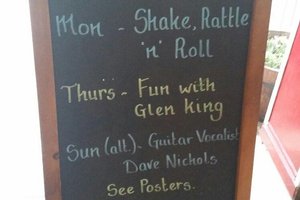 Mon - Shake, Rattle
'n' Roll
Thurs - Fun with
Glen King
Sun (alt.) - Guitar Vocalist
Dave Nichols
See Posters.